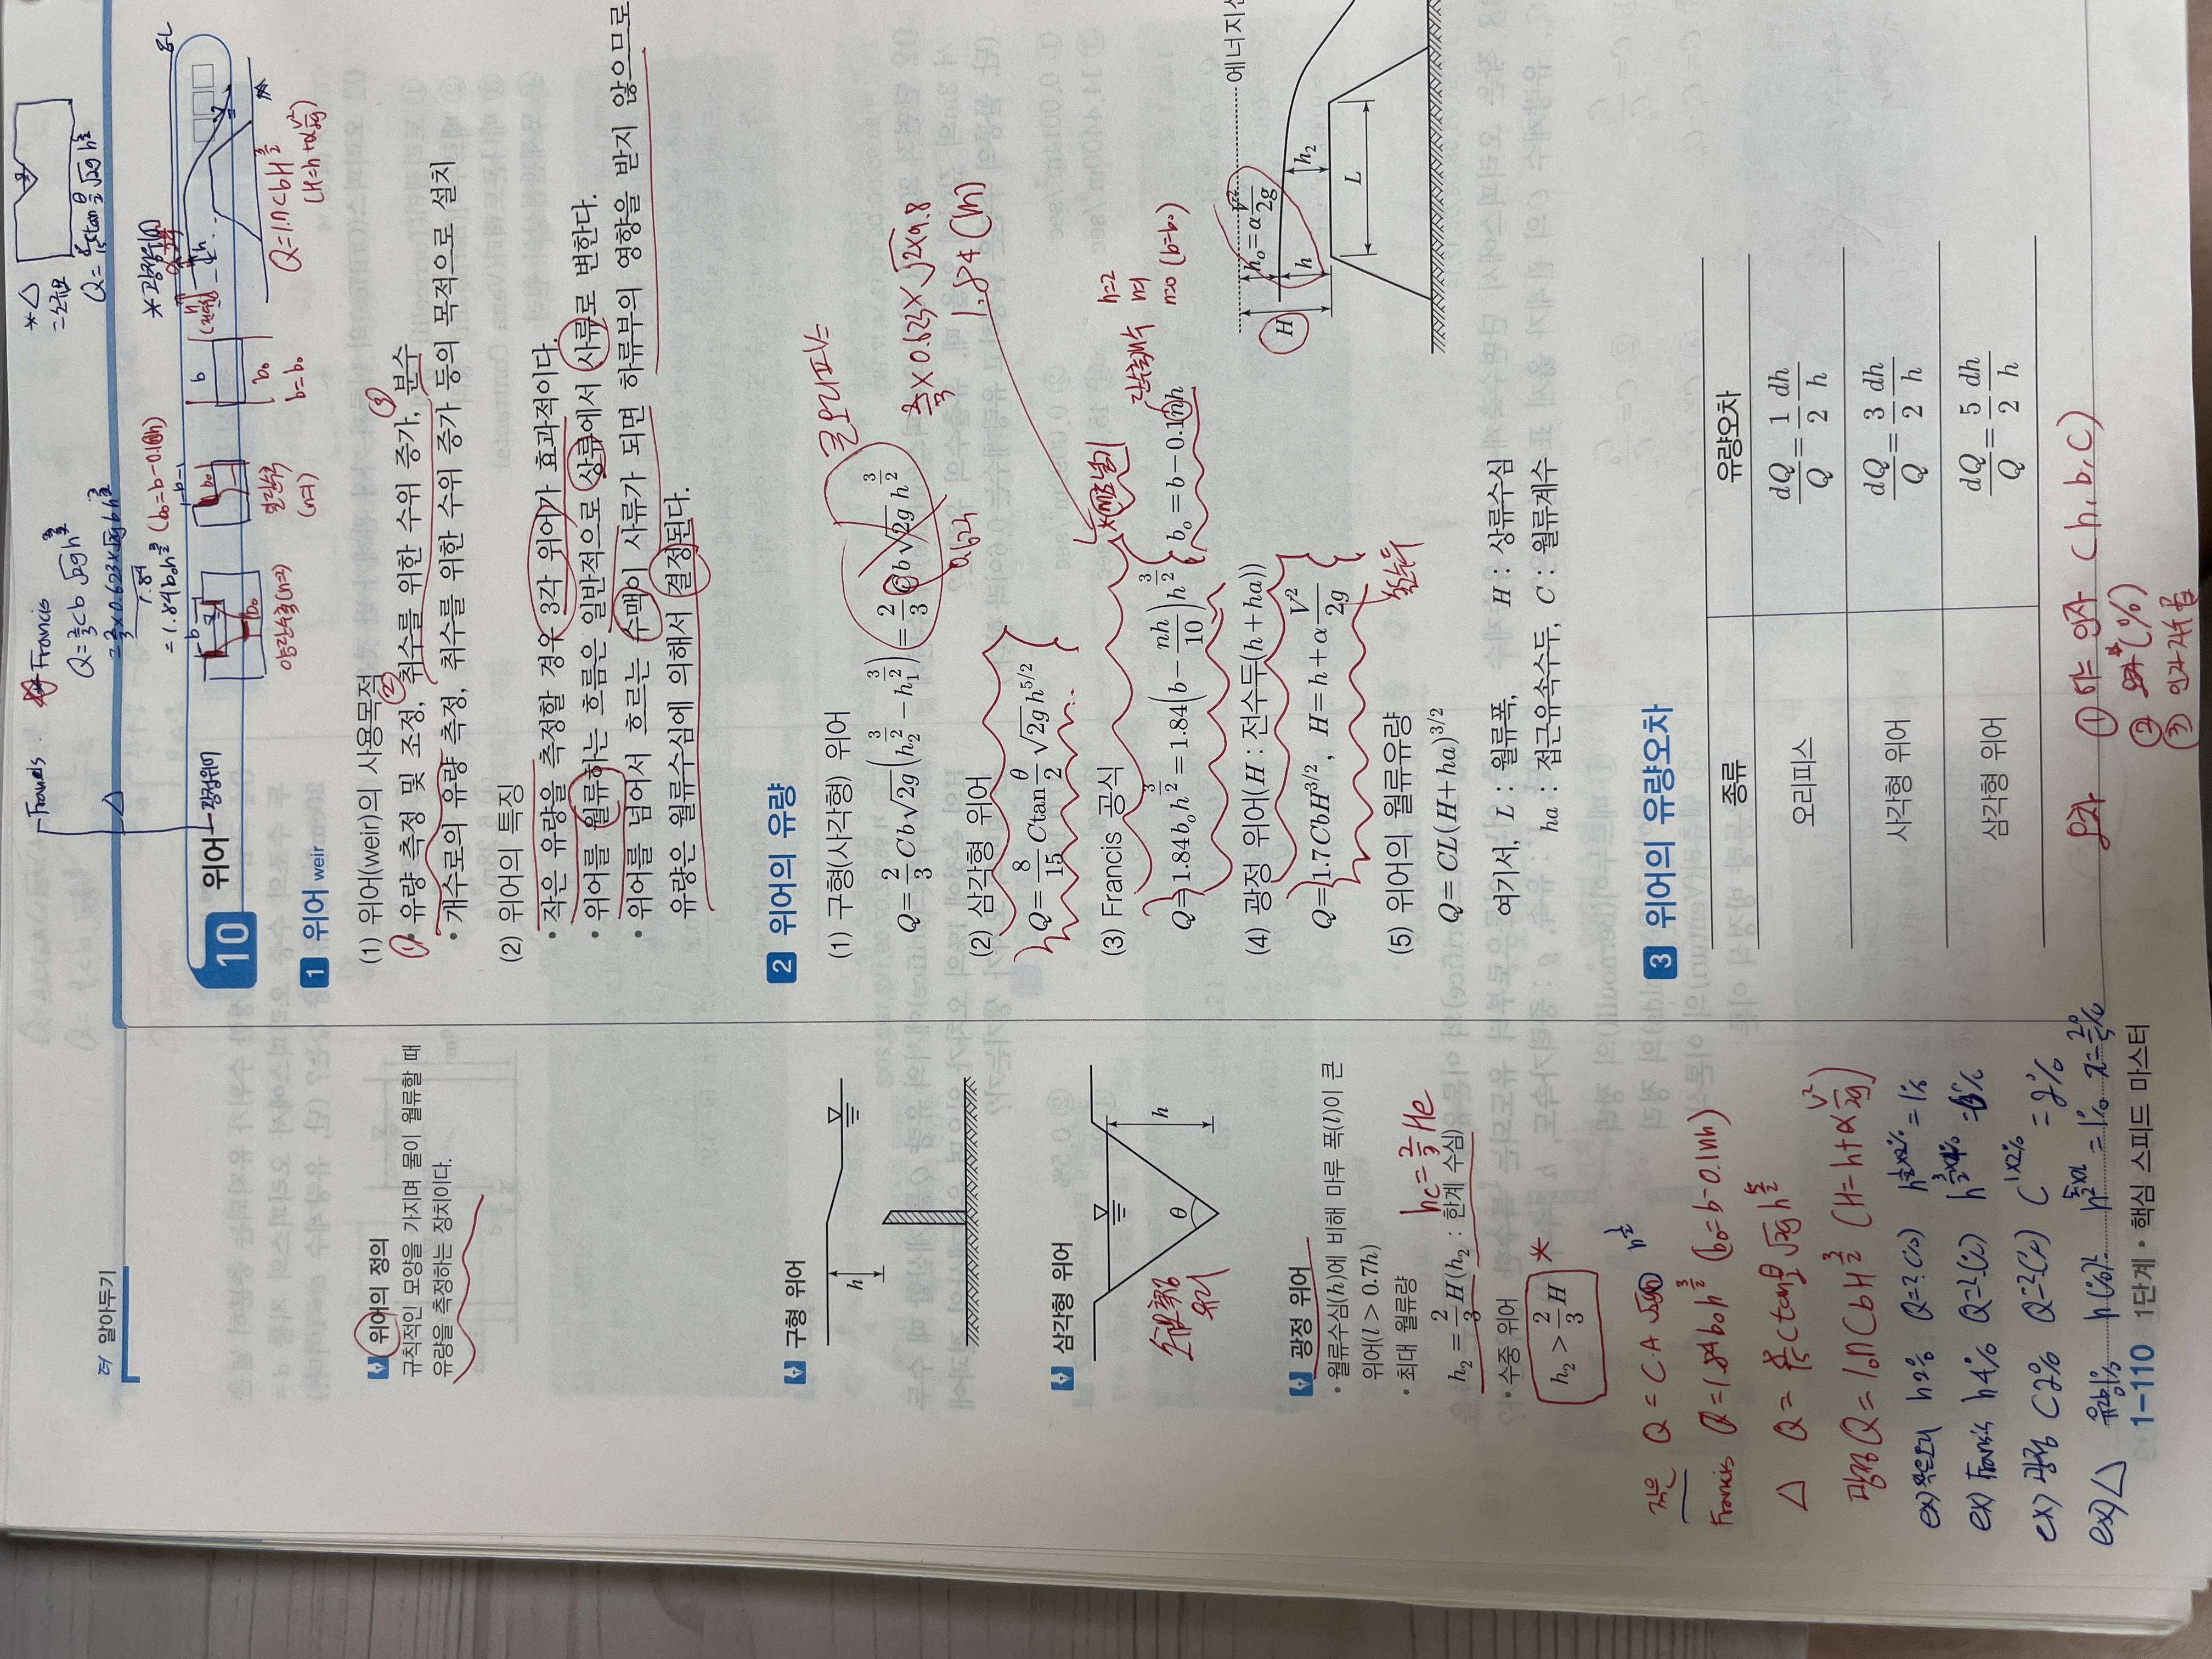 더 알아두기
위어의 정의
규칙적인 모양을 가지며 물이 월류할 때
유량을 측정하는 장치이다.
구형 위어
h
삼각형 위어
θ
h
광정 위어
• 월류수심(h)에 비해 마루 폭(l)이 큰
위어(l > 0.7h)
• 최대 월류량
hc = 2/3 He
h₂ = 2/3 H (h₂ : 한계 수심)
• 수중 위어
h₂ > 2/3 H *
작은 Q = C A
Francis Q = 1.84 b₀ h^(3/2) (b₀ = b - 0.1nh)
△ Q = 8/15 C tan θ/2 √2g h^(5/2)
광정 Q = 1.7 C b H^(3/2) (H = h + α V²/2g)
ex) 작은오리 h 2% Q = ? (%) = 1%
ex) Francis h 4% Q = ? (%)
ex) 광정 C 2% Q = ? (%) C 1×2% = 2%
ex) △ 유량 1% h (%)?
1-110 1단계 • 핵심 스피드 마스터
Francis
△
광정위어
* Francis
Q = 2/3 C b √2g h^(3/2)
= 2/3 × 0.623 × √2g b h^(3/2)
1.84
= 1.84 b₀ h^(3/2) (b₀ = b - 0.1nh)
양단수축 (n=2)
일단수축
(n=1)
b
b₀
b = b₀
* △
Q = 8/15 C tan θ/2 √2g h^(5/2)
* 광정위어
Q = 1.7 C b H^(3/2)
(H = h + α V²/2g)
10 위어
1 위어 weir
(1) 위어(weir)의 사용목적
• 유량 측정 및 조정, 취수를 위한 수위 증가, 분수
• 개수로의 유량 측정, 취수를 위한 수위 증가 등의 목적으로 설치
(2) 위어의 특징
• 작은 유량을 측정할 경우 3각 위어가 효과적이다.
• 위어를 월류하는 흐름은 일반적으로 상류에서 사류로 변한다.
• 위어를 넘어서 흐르는 수맥이 사류가 되면 하류부의 영향을 받지 않으므로
유량은 월류수심에 의해서 결정된다.
2 위어의 유량
(1) 구형(사각형) 위어
큰오리피스
Q = 2/3 Cb√2g (h₂^(3/2) - h₁^(3/2)) = 2/3 Cb√2g h^(3/2)
0.623
2/3 × 0.623 × √2×9.8
1.84 (m)
(2) 삼각형 위어
Q = 8/15 C tan θ/2 √2g h^(5/2)
(3) Francis 공식
Q = 1.84b₀h^(3/2) = 1.84(b - nh/10)h^(3/2)
b₀ = b - 0.1nh
단수축계수
n=2
n=1
n=0 (b=b₀)
(4) 광정 위어(H : 전수두(h + ha))
Q = 1.7CbH^(3/2), H = h + α V²/2g
H
h₀ = α V²/2g
h
h₂
L
(5) 위어의 월류유량
Q = CL(H + ha)^(3/2)
여기서, L : 월류폭, H : 상류수심
ha : 접근유속수두, C : 월류계수
3 위어의 유량오차
종류 유량오차
오리피스 dQ/Q = 1/2 dh/h
사각형 위어 dQ/Q = 3/2 dh/h
삼각형 위어 dQ/Q = 5/2 dh/h
오차 ① 아는 인자 (h, b, C)
② 오차 (%)